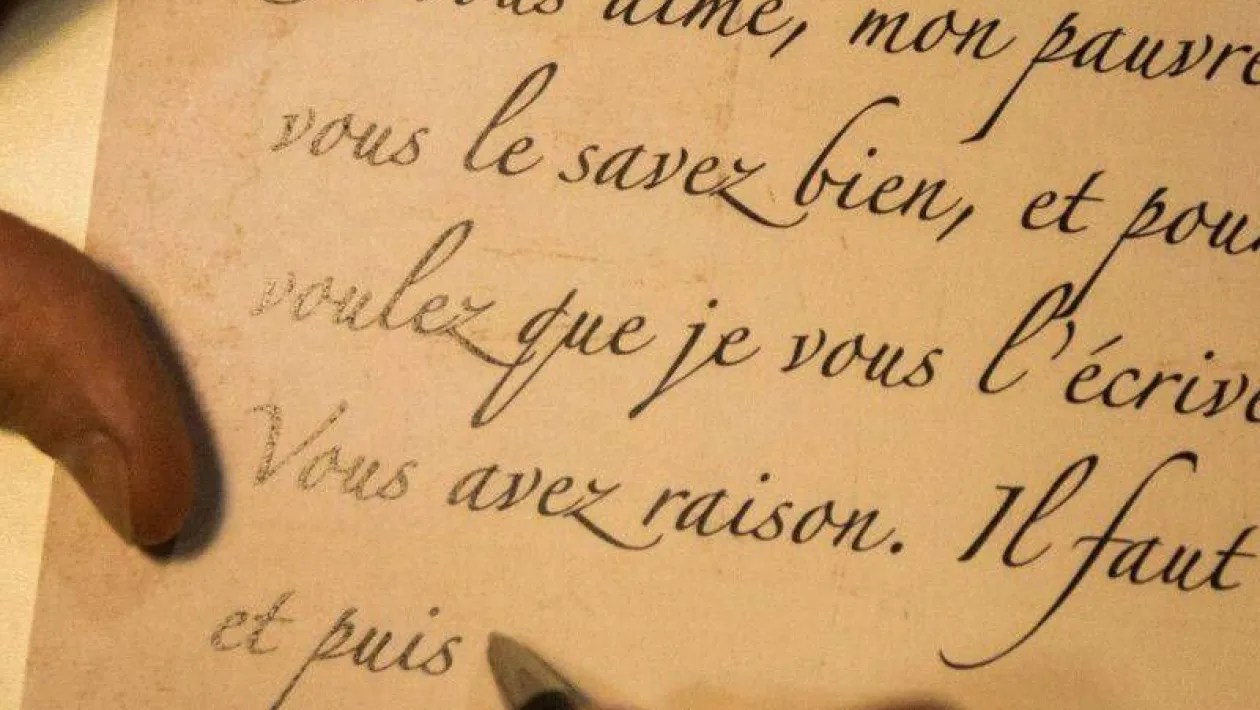 vous aime, mon pauvre
vous le savez bien, et pour
voulez que je vous l'écrive
Vous avez raison. Il faut
et puis